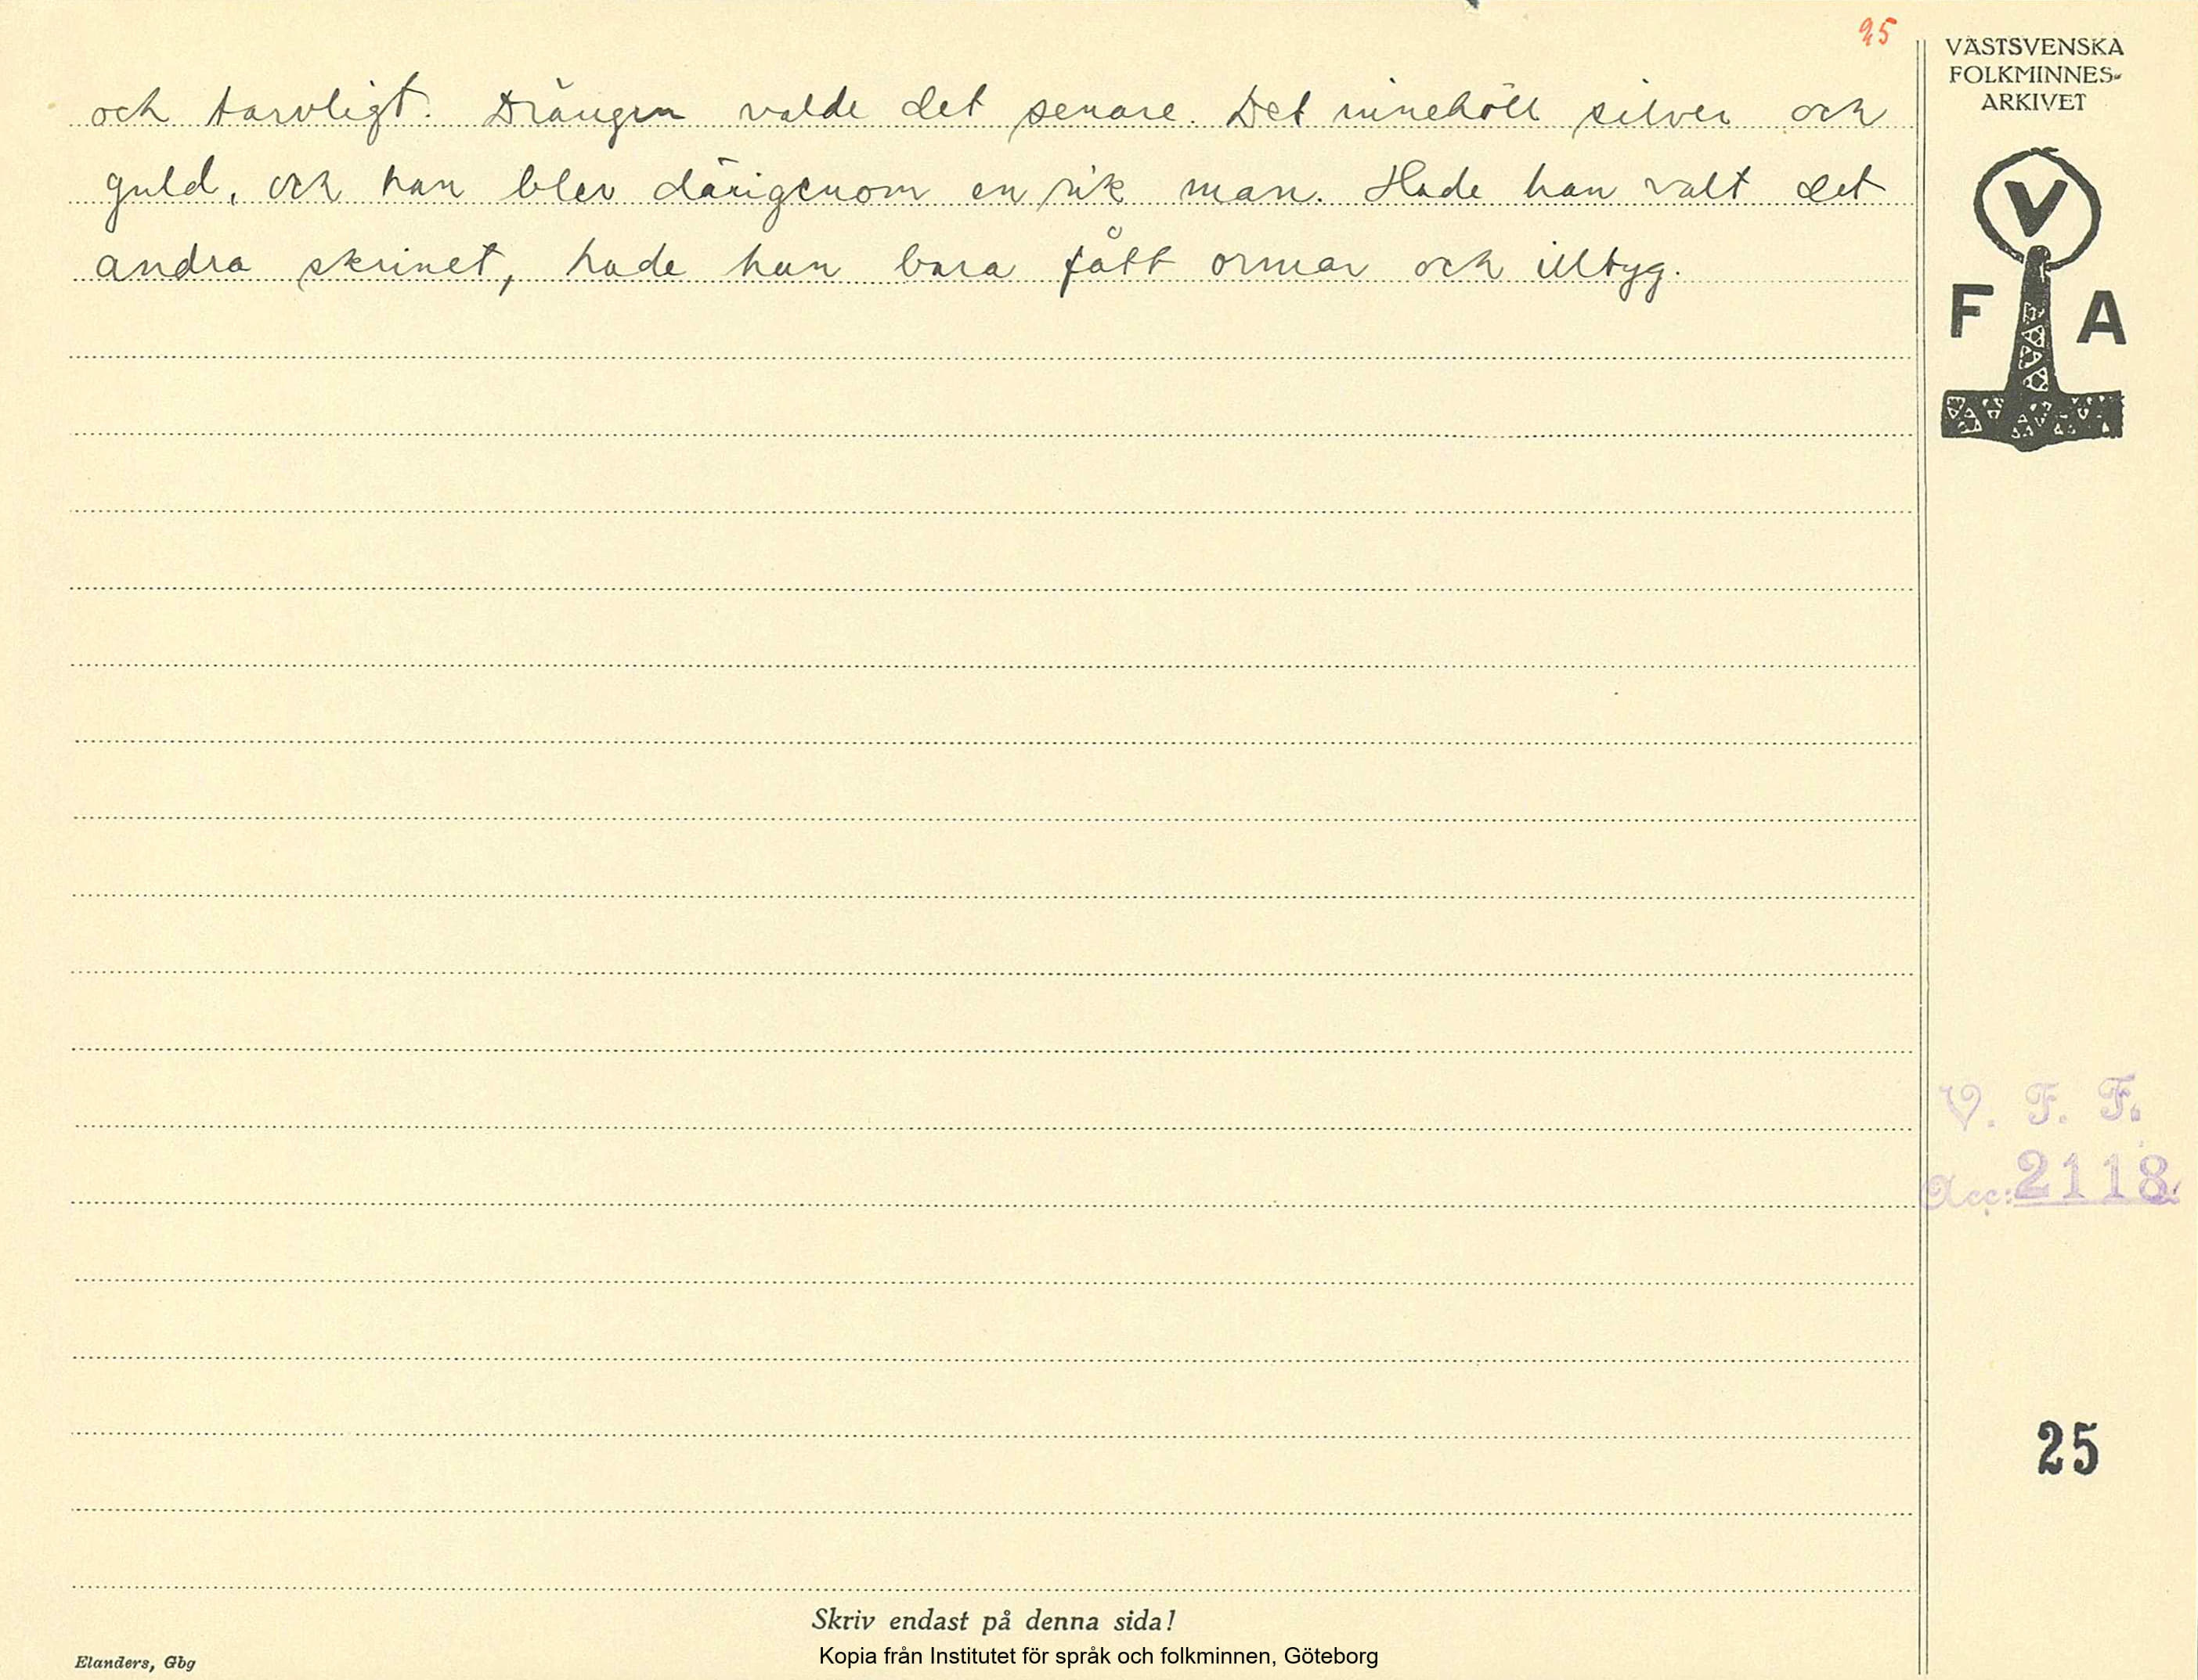 25
och tarvligt. Drängen valde det senare. Det innehöll silver och
guld, och han blev därigenom en rik man. Hade han valt det
andra skrinet, hade han bara fått ormar och illtyg.
VÄSTSVENSKA
FOLKMINNES-
ARKIVET
V
F A
V. F. F.
Acc: 2118
25
Skriv endast på denna sida!
Kopia från Institutet för språk och folkminnen, Göteborg
Elanders, Gbg